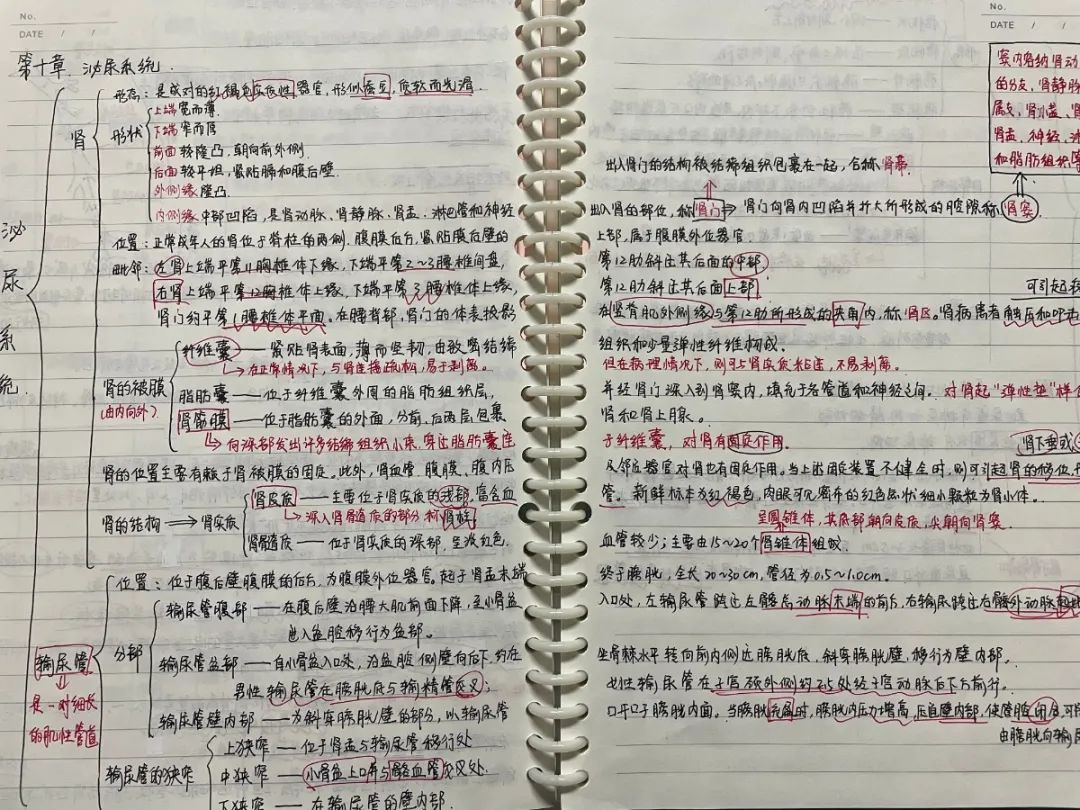 No.
DATE / /
第十章 泌尿系统.
泌尿系统
肾
形态：是成对的红褐色实质性器官，形似蚕豆，质软而光滑.
形状
上端宽而薄.
下端窄而厚
前面较隆凸，朝向前外侧.
后面较平坦，紧贴膈和腹后壁.
外侧缘隆凸.
内侧缘中部凹陷，是肾动脉、肾静脉、肾盂、淋巴管和神经
位置：正常成年人的肾位于脊柱的两侧、腹膜后方，紧贴腹后壁的
毗邻：左肾上端平第11胸椎体下缘，下端平第2~3腰椎间盘，
右肾上端平第12胸椎体上缘，下端平第3腰椎体上缘，
肾门约平第1腰椎体平面。在腰背部，肾门的体表投影
肾的被膜
(由内向外)
纤维囊 —— 紧贴肾表面，薄而坚韧，由致密结缔
在正常情况下，与肾连接疏松，易于剥离。
脂肪囊 —— 位于纤维囊外周的脂肪组织层，
肾筋膜 —— 位于脂肪囊的外面，分前、后两层包裹
向深部发出许多结缔组织小束，穿过脂肪囊连
肾的位置主要有赖于肾被膜的固定。此外，肾血管、腹膜、腹内压
肾的结构 肾实质
肾皮质 —— 主要位于肾实质的浅部，富含血
深入肾髓质的部分称肾柱
肾髓质 —— 位于肾实质的深部，呈淡红色.
输尿管
是一对细长的肌性管道
位置：位于腹后壁腹膜的后方，为腹膜外位器官，起于肾盂末端
分部
输尿管腹部 —— 在腹后壁沿腰大肌前面下降，至小骨盆
进入盆腔移行为盆部。
输尿管盆部 —— 自小骨盆入口处，沿盆腔侧壁向后下，约在
男性输尿管在膀胱底与输精管交叉；
输尿管壁内部 —— 为斜穿膀胱壁的部分，以输尿管
输尿管的狭窄
上狭窄 —— 位于肾盂与输尿管移行处
中狭窄 —— 小骨盆上口与髂血管交叉处.
下狭窄 —— 在输尿管的壁内部.
No.
DATE / /
窦内容纳肾动
的分支，肾静脉
属支，肾小盏、肾
肾盂、神经、淋
和脂肪组织等
出入肾门的结构被结缔组织包裹在一起，合称肾蒂
出入肾的部位，称肾门 肾门向肾内凹陷并扩大所形成的腔隙称肾窦
上部，属于腹膜外位器官
第12肋斜过其后面的中部
第12肋斜过其后面上部
可引起
在竖脊肌外侧缘与第12肋所形成的夹角内，称肾区。肾病患者触压和叩击
组织和少量弹性纤维构成.
但在病理情况下，则可与肾实质粘连，不易剥离.
并经肾门深入到肾窦内，填充于各管道和神经之间. 对肾起“弹性垫”样
肾和肾上腺.
于纤维囊，对肾有固定作用.
肾下垂或
及邻近器官对肾也有固定作用。当上述固定装置不健全时，则可引起肾的移位，
管. 新鲜标本为红褐色，肉眼可见密布的红色点状细小颗粒为肾小体.
呈圆锥体，其底部朝向皮质，尖朝向肾窦.
血管较少；主要由15~20个肾锥体组成.
终于膀胱，全长20~30cm，管径为0.5~1.0cm.
入口处，左输尿管跨过左髂总动脉末端的前方，右输尿管跨过右髂外动脉起
坐骨棘水平转向前内侧达膀胱底，斜穿膀胱壁，移行为壁内部，
女性输尿管在子宫颈外侧约2.5处经子宫动脉后下方前行。
口开口于膀胱内面. 当膀胱充盈时，膀胱内压力增高，压迫壁内部，使管腔闭合，可
由膀胱向输尿